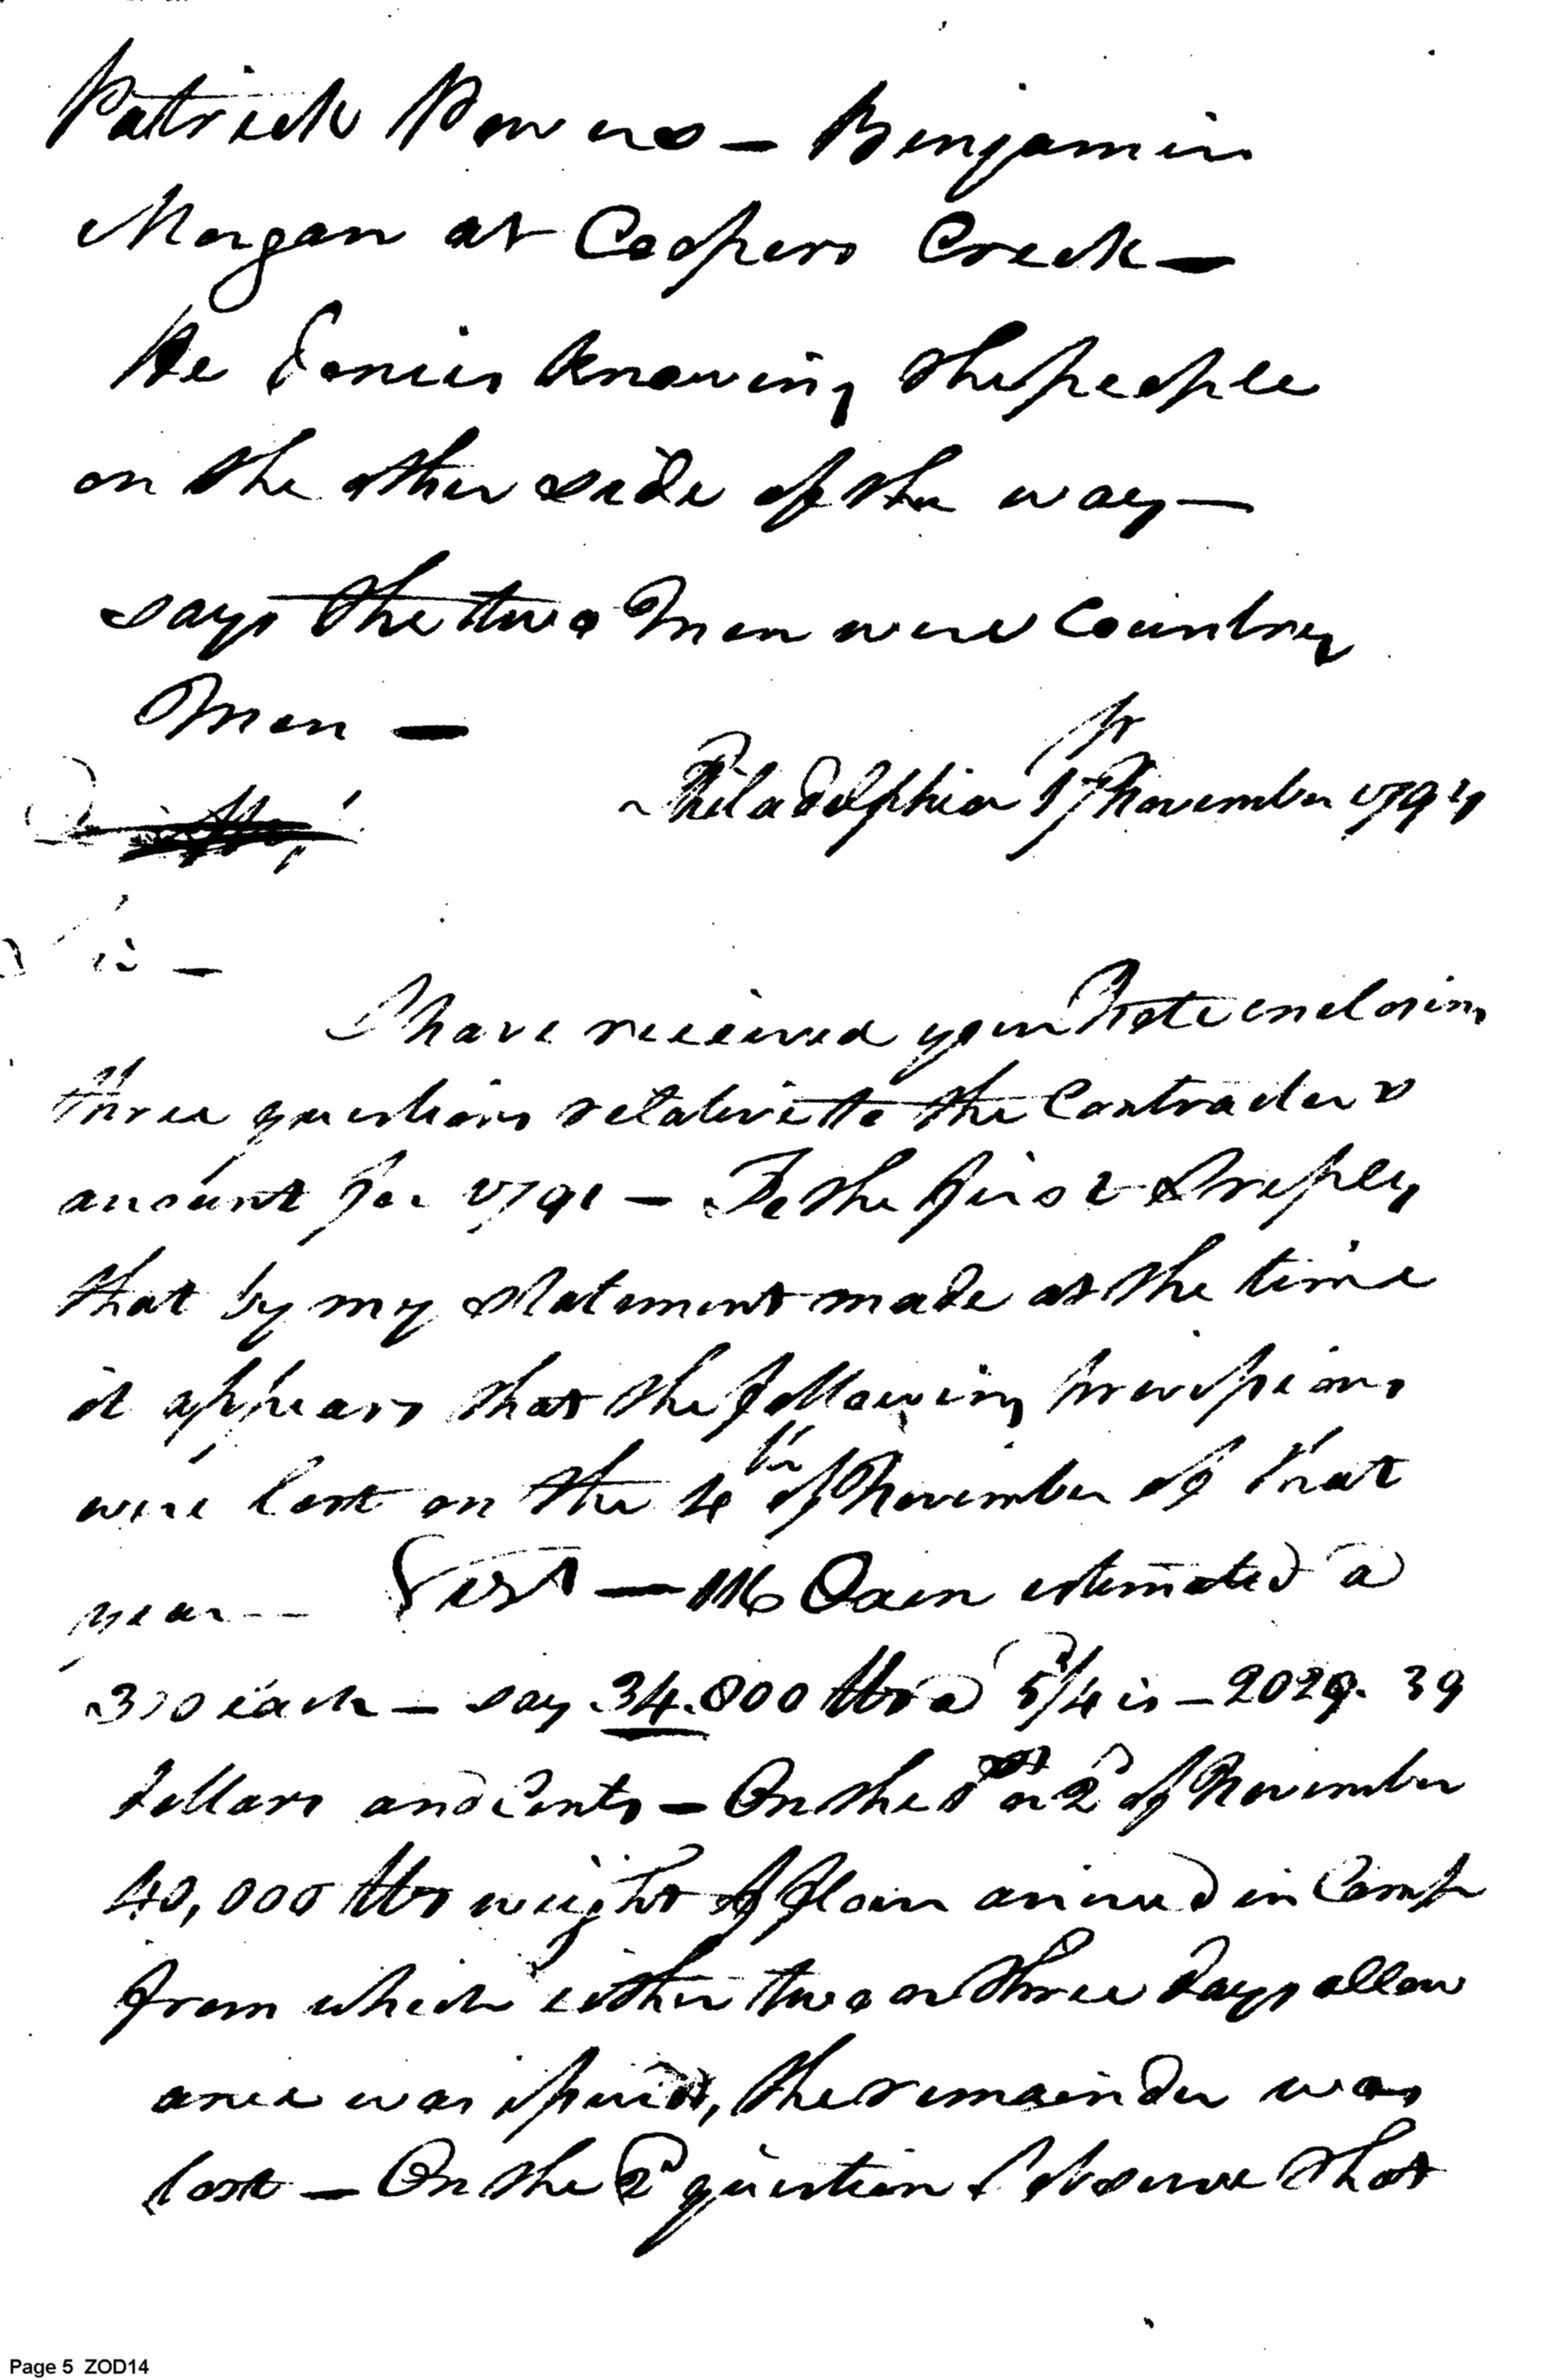 Patrick Powers — Benjamin
Morgan at Coopers Creek —
He denies knowing the people
on the other side of the way —
says the two Men were Country
Men —
Philadelphia 17th November 1794
I have received your Note enclosing
three questions relative to the Contractors
account for 1791 — To the first I reply
that by my statement made at the time
it appears that the following provisions
were lost on the 4th of November of that
year — Viz — 116 Oxen estimated a
each — say 34.000 lbs a 5¾ is — 2029. 39
dollars and Cents — On the 1st or 2d of November
40,000 lbs weight of flour arrived in Camp
from which either two or three days allow
ance was issued, the remainder was
lost — On the 2d question I observe that
Page 5 ZOD14